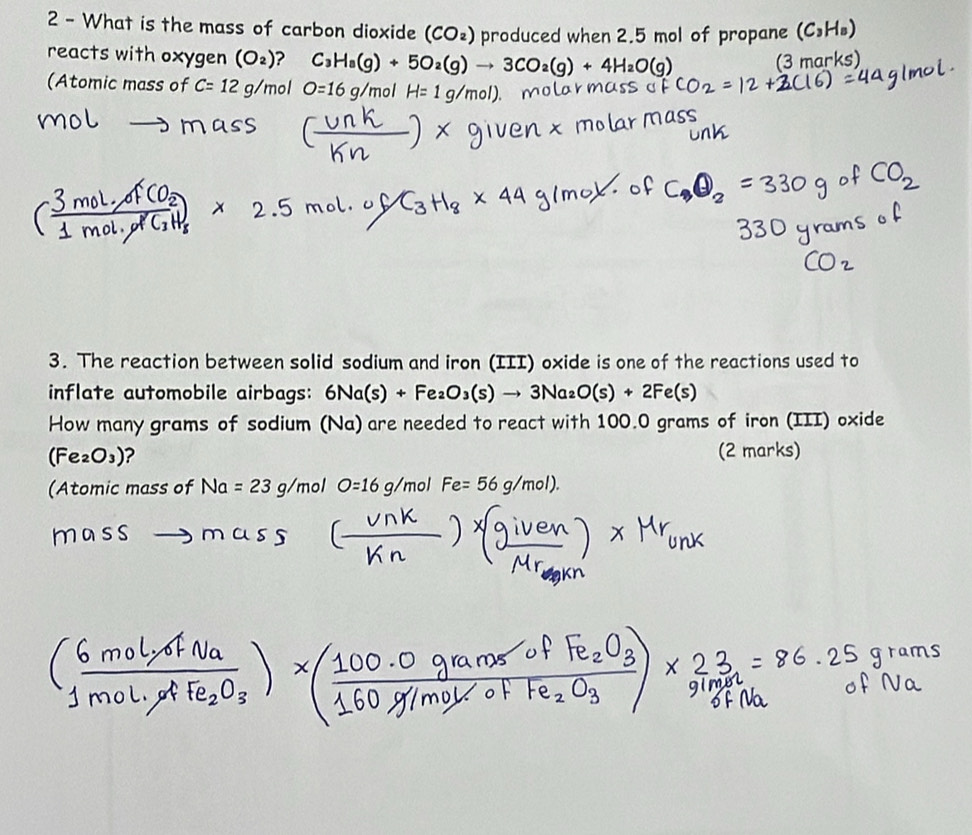 2 - What is the mass of carbon dioxide (CO₂) produced when 2.5 mol of propane (C₃H₈)
reacts with oxygen (O₂)? C₃H₈(g) + 5O₂(g) → 3CO₂(g) + 4H₂O(g) (3 marks)
(Atomic mass of C= 12 g/mol O=16 g/mol H= 1 g/mol). molar mass of CO₂ = 12 + 2(16) = 44 g/mol.
mol → mass (unk/Kn) × given × molar mass unk
(3 mol. of CO₂/1 mol. of C₃H₈) × 2.5 mol. of C₃H₈ × 44 g/mol. of CO₂ = 330 g of CO₂
330 grams of
CO₂
3. The reaction between solid sodium and iron (III) oxide is one of the reactions used to
inflate automobile airbags: 6Na(s) + Fe₂O₃(s) → 3Na₂O(s) + 2Fe(s)
How many grams of sodium (Na) are needed to react with 100.0 grams of iron (III) oxide
(Fe₂O₃)? (2 marks)
(Atomic mass of Na = 23 g/mol O=16 g/mol Fe= 56 g/mol).
mass → mass (unk/Kn) × (given/Mr kn) × Mr unk
(6 mol. of Na/1 mol. of Fe₂O₃) × (100.0 grams of Fe₂O₃/160 g/mol of Fe₂O₃) × 23 g/mol of Na = 86.25 grams of Na